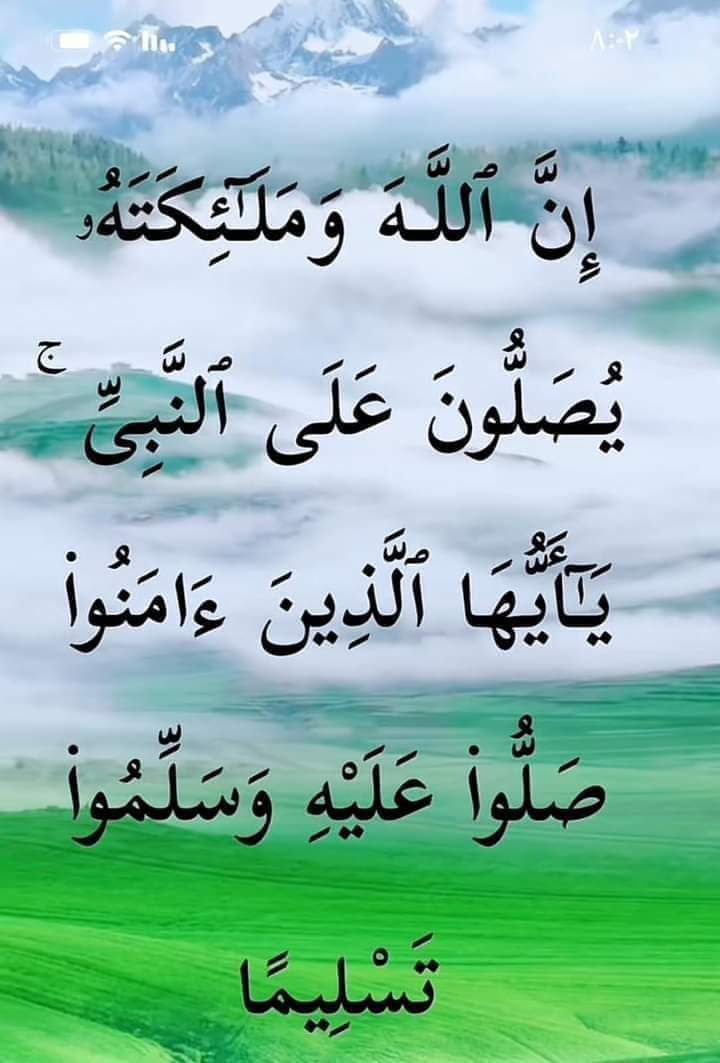 ٨:٠٢
إِنَّ ٱللَّهَ وَمَلَـٰٓئِكَتَهُۥ
يُصَلُّونَ عَلَى ٱلنَّبِىِّ ۚ
يَـٰٓأَيُّهَا ٱلَّذِينَ ءَامَنُوا۟
صَلُّوا۟ عَلَيْهِ وَسَلِّمُوا۟
تَسْلِيمًا